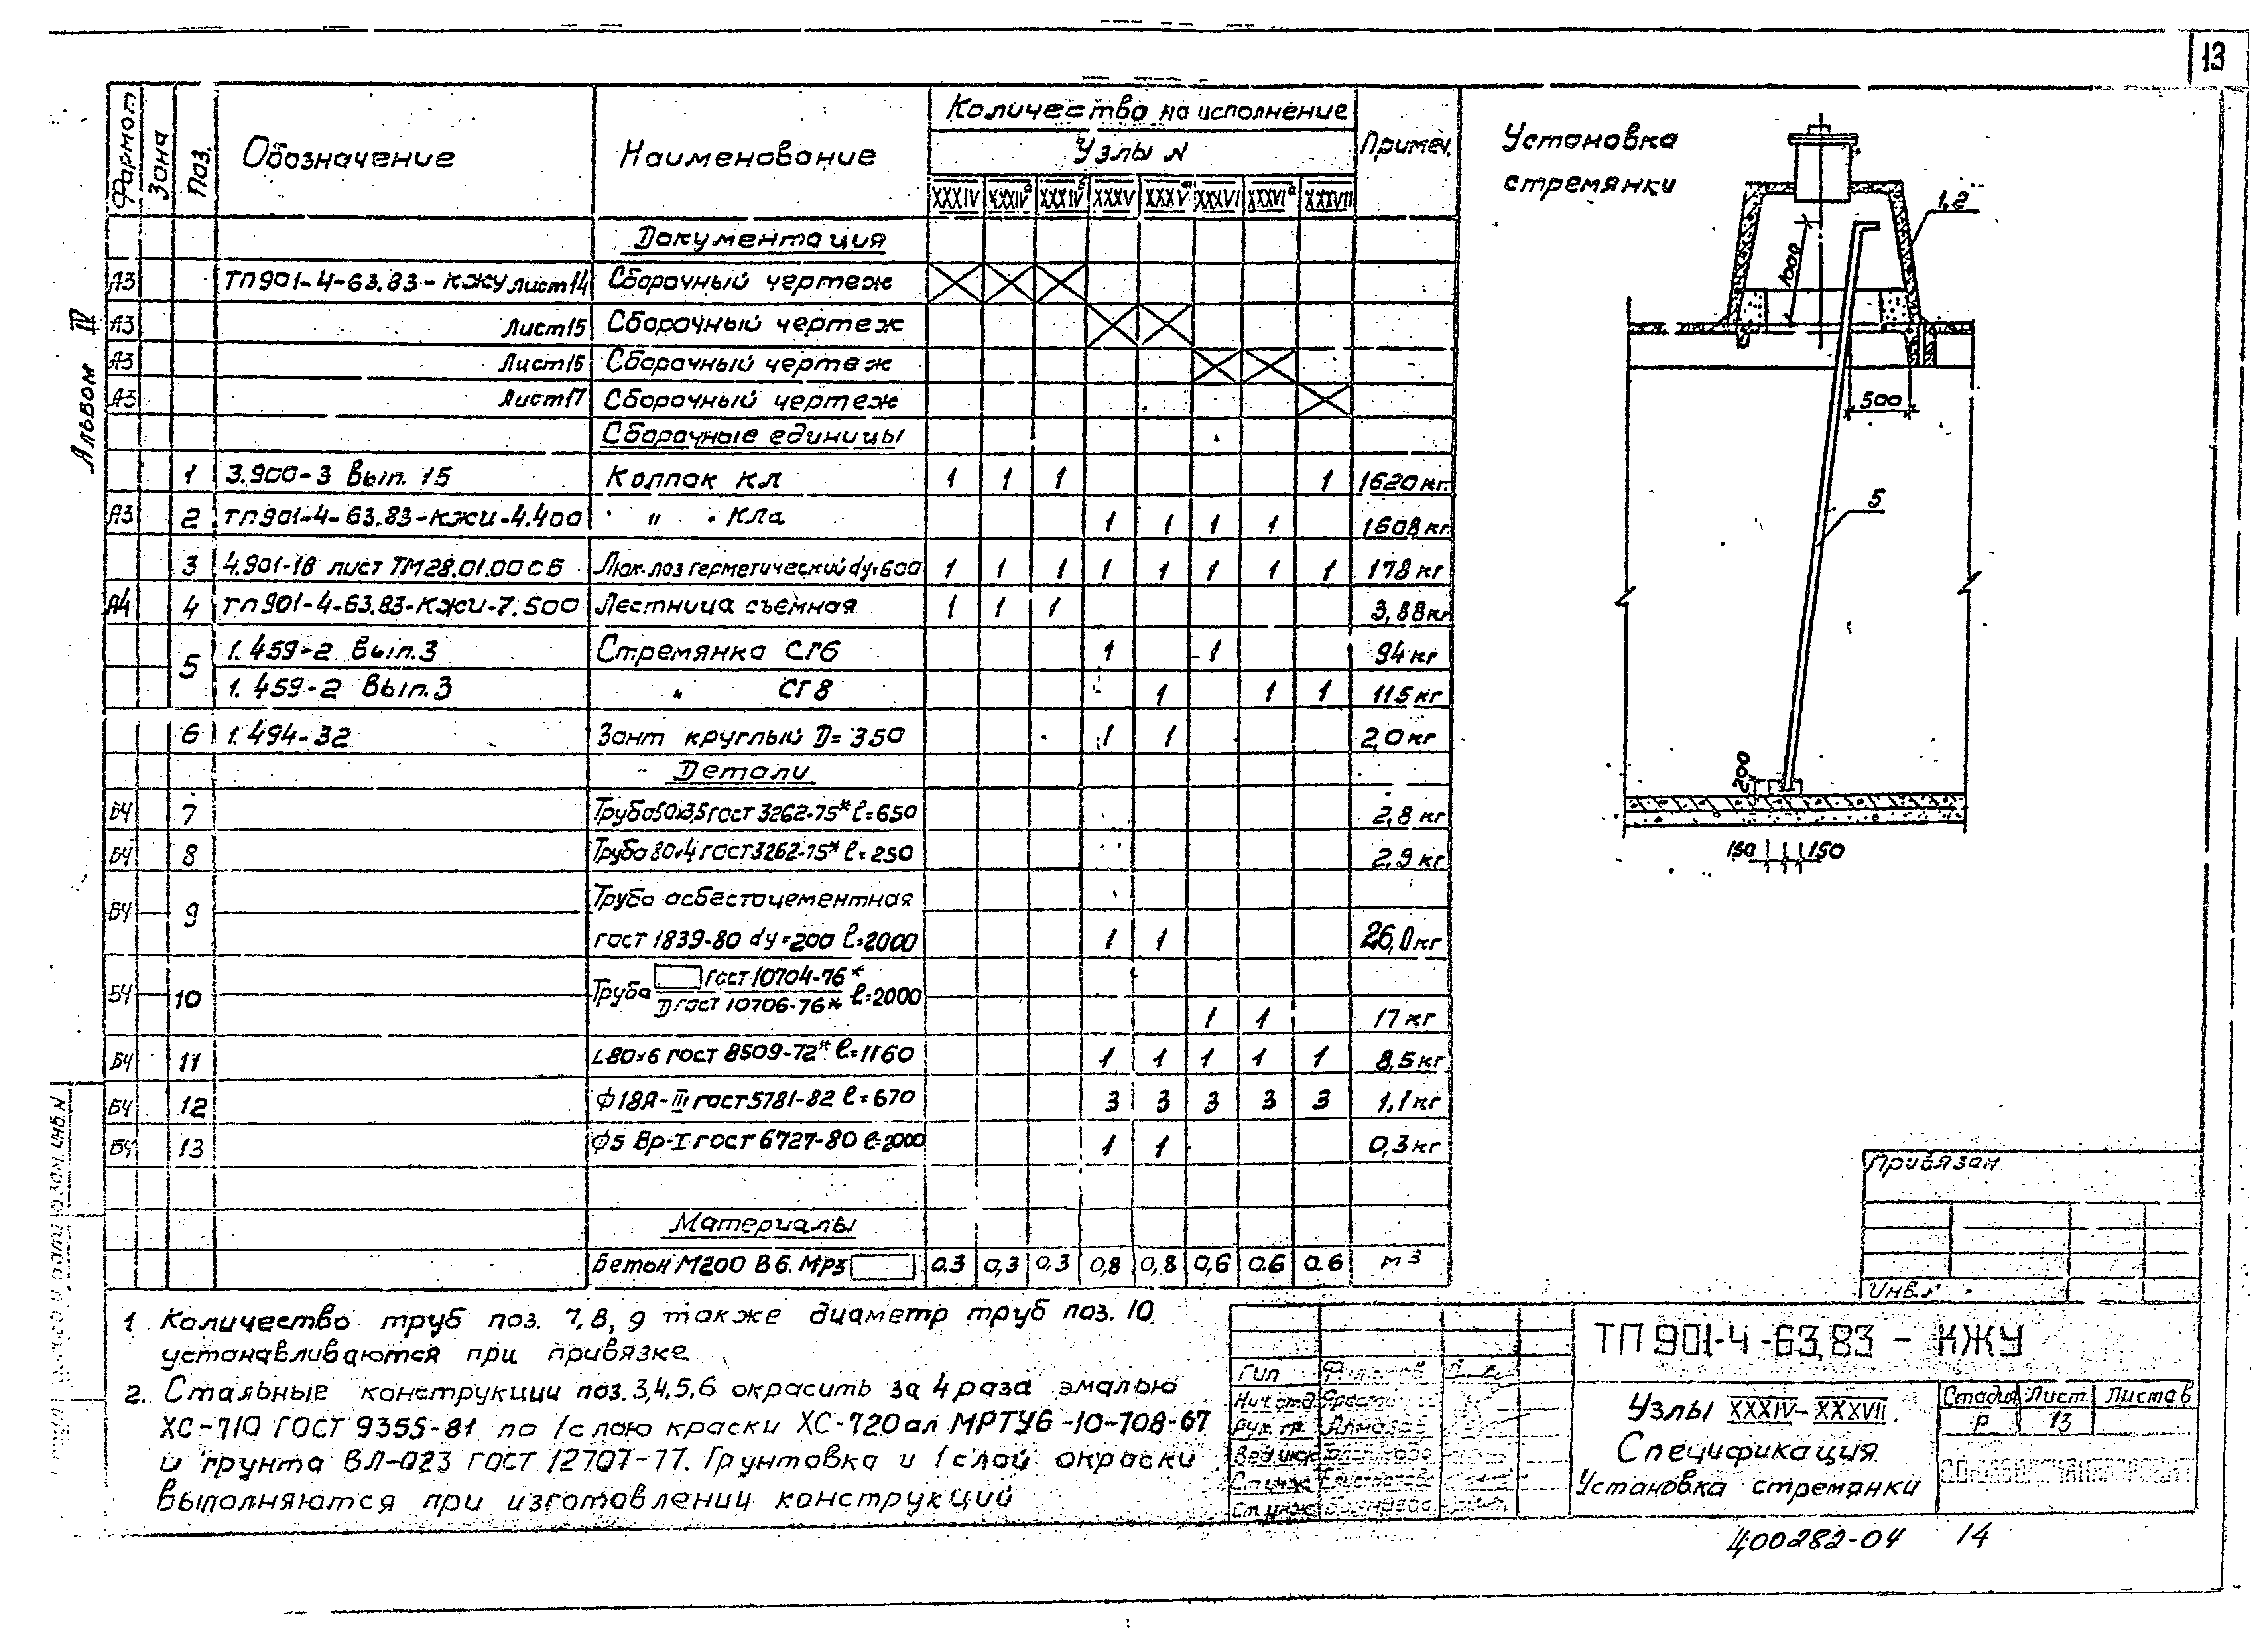 13
Альбом IV
Формат Зона Поз. Обозначение Наименование Количество на исполнение Примеч.
Узлы N
XXXIV XXXIVа XXXIVб XXXV XXXVа XXXVI XXXVIа XXXVII
Документация
А3 ТП901-4-63.83-КЖУ лист14 Сборочный чертеж
А3 Лист15 Сборочный чертеж
А3 Лист16 Сборочный чертеж
А3 Лист17 Сборочный чертеж
Сборочные единицы
1 3.900-3 Вып. 15 Колпак КЛ 1 1 1 1 1620кг.
А3 2 ТП901-4-63.83-КЖИ-4.400 " КЛа 1 1 1 1 1608кг.
3 4.901-18 лист ТМ28.01.00СБ Люк-лаз герметический dу=600 1 1 1 1 1 1 1 1 178кг
А4 4 ТП901-4-63.83-КЖИ-7.500 Лестница съемная 1 1 1 3,88кг
5 1.459-2 Вып.3 Стремянка СГ6 1 1 94кг
1.459-2 Вып.3 " СГ8 1 1 1 115кг
6 1.494-32 Зонт круглый D=350 1 1 2,0кг
Детали
БЧ 7 Труба50х3,5 гост 3262-75* ℓ=650 2,8кг
БЧ 8 Труба80х4 гост3262-75* ℓ=250 2,9кг
БЧ 9 Труба асбестоцементная
гост 1839-80 dу=200 ℓ=2000 1 1 26,0кг
БЧ 10 Труба гост10704-76* ℓ=2000
Д гост 10706-76* 1 1 17кг
БЧ 11 L80х6 гост 8509-72* ℓ=1160 1 1 1 1 1 8,5кг
БЧ 12 ф18А-III гост5781-82 ℓ=670 3 3 3 3 3 1,1кг
БЧ 13 ф5 Вр-I гост 6727-80 ℓ=2000 1 1 0,3кг
Материалы
Бетон М200 В6. Мрз 0.3 0,3 0,3 0,8 0,8 0,6 0.6 0.6 м3
Установка
стремянки
1,2
1000
500
5
200
150 150
1 Количество труб поз. 7,8,9 также диаметр труб поз. 10.
устанавливаются при привязке
2. Стальные конструкции поз.3,4,5,6 окрасить за 4 раза эмалью
ХС-710 ГОСТ 9355-81 по 1слою краски ХС-720ал МРТУ6-10-708-67
и грунта ВЛ-023 гост 12707-77. Грунтовка и 1слой окраски
выполняются при изготовлении конструкций
Привязан
Инв.
Гип
Нач.отд
Рук. гр.
Вед.инж
Ст.инж
Ст.инж
ТП901-4-63.83-КЖУ
Узлы XXXIV-XXXVII.
Спецификация
Установка стремянки
Стадия Лист Листов
Р 13
400282-04 14